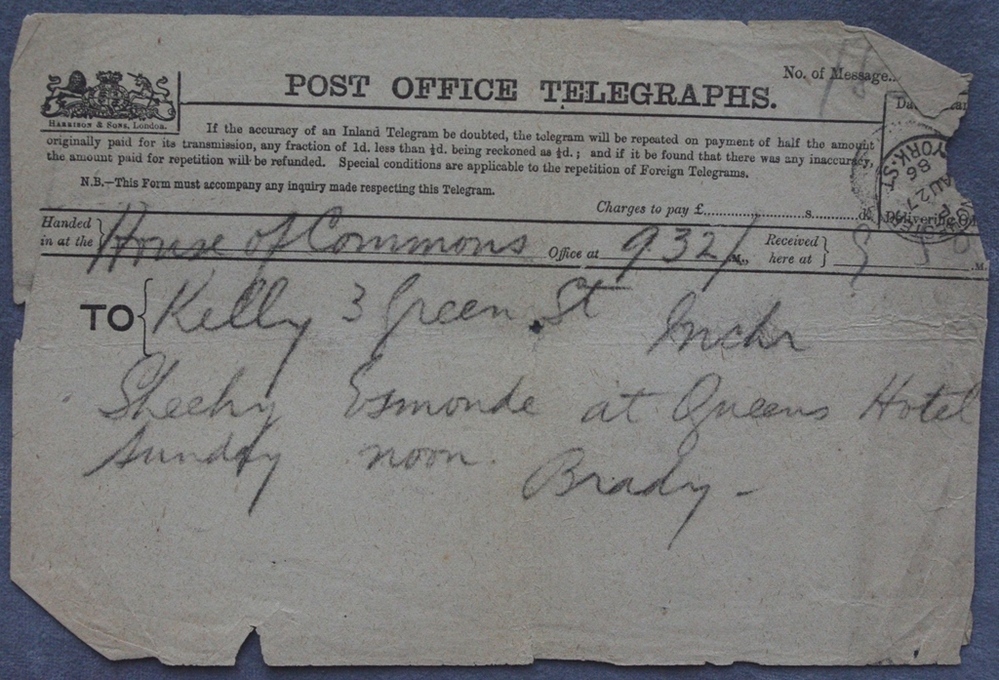 No. of Message..
POST OFFICE TELEGRAPHS.
HARRISON & SONS, London.
If the accuracy of an Inland Telegram be doubted, the telegram will be repeated on payment of half the amount
originally paid for its transmission, any fraction of 1d. less than ½d. being reckoned as ½d.; and if it be found that there was any inaccuracy,
the amount paid for repetition will be refunded. Special conditions are applicable to the repetition of Foreign Telegrams.
N.B.—This Form must accompany any inquiry made respecting this Telegram.
YORK. ST.
AU 27
86
Charges to pay £ s. d.
Delivering
Handed in at the House of Commons Office at 932 M., Received here at M.
TO Kelly 3 Green St Mchr
Sheehy Esmonde at Queens Hotel
Sunday noon.
Brady -